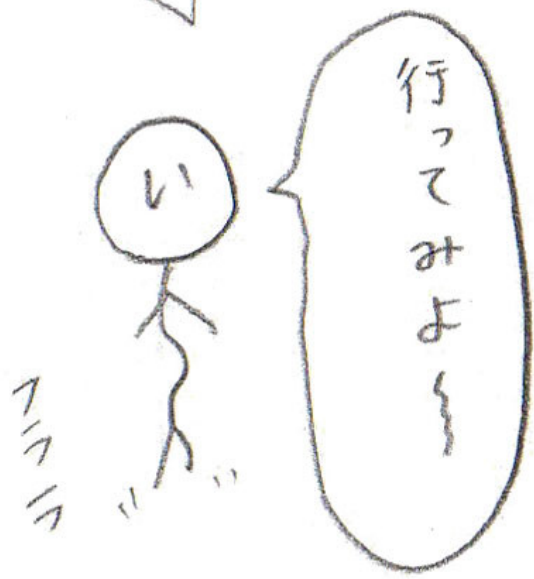 行ってみよ〜
い
フララ